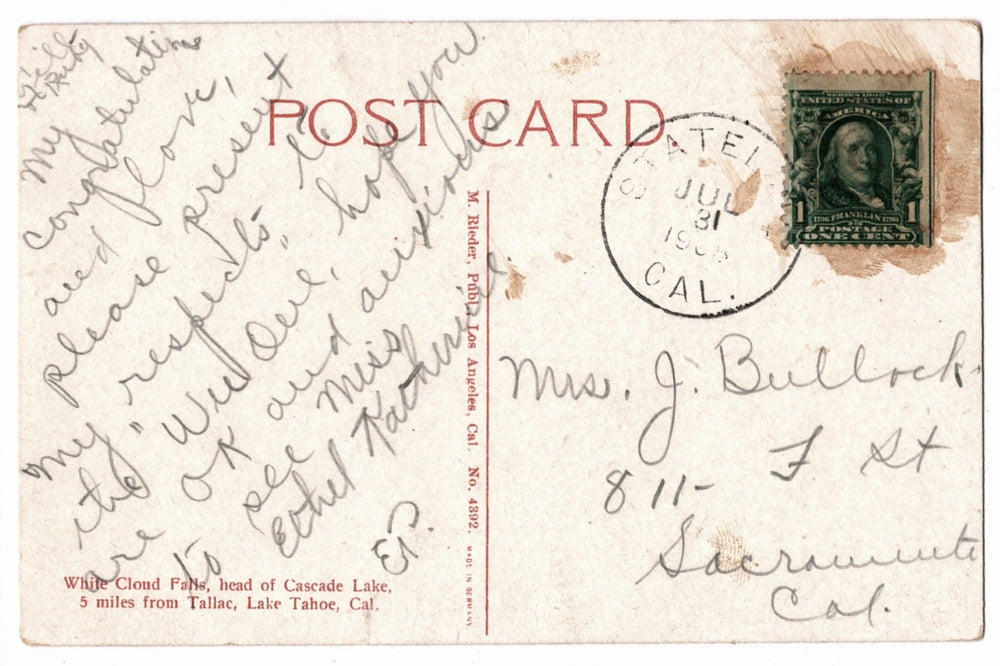 POST CARD
My
congratulations
and love,
please present
"my respects" to
the "Wee One", hope you
are OK and anxious
to see Miss
Ethel Katherine.
EP.
M. Rieder, Publ. Los Angeles, Cal. No. 4392.
MADE IN GERMANY.
White Cloud Falls, head of Cascade Lake,
5 miles from Tallac, Lake Tahoe, Cal.
JUL
31
CAL.
SERIES 1902
UNITED STATES OF
AMERICA
1706 FRANKLIN 1790
1 POSTAGE 1
ONE CENT
Mrs. J. Bullock
811- F St
Sacramento
Cal.